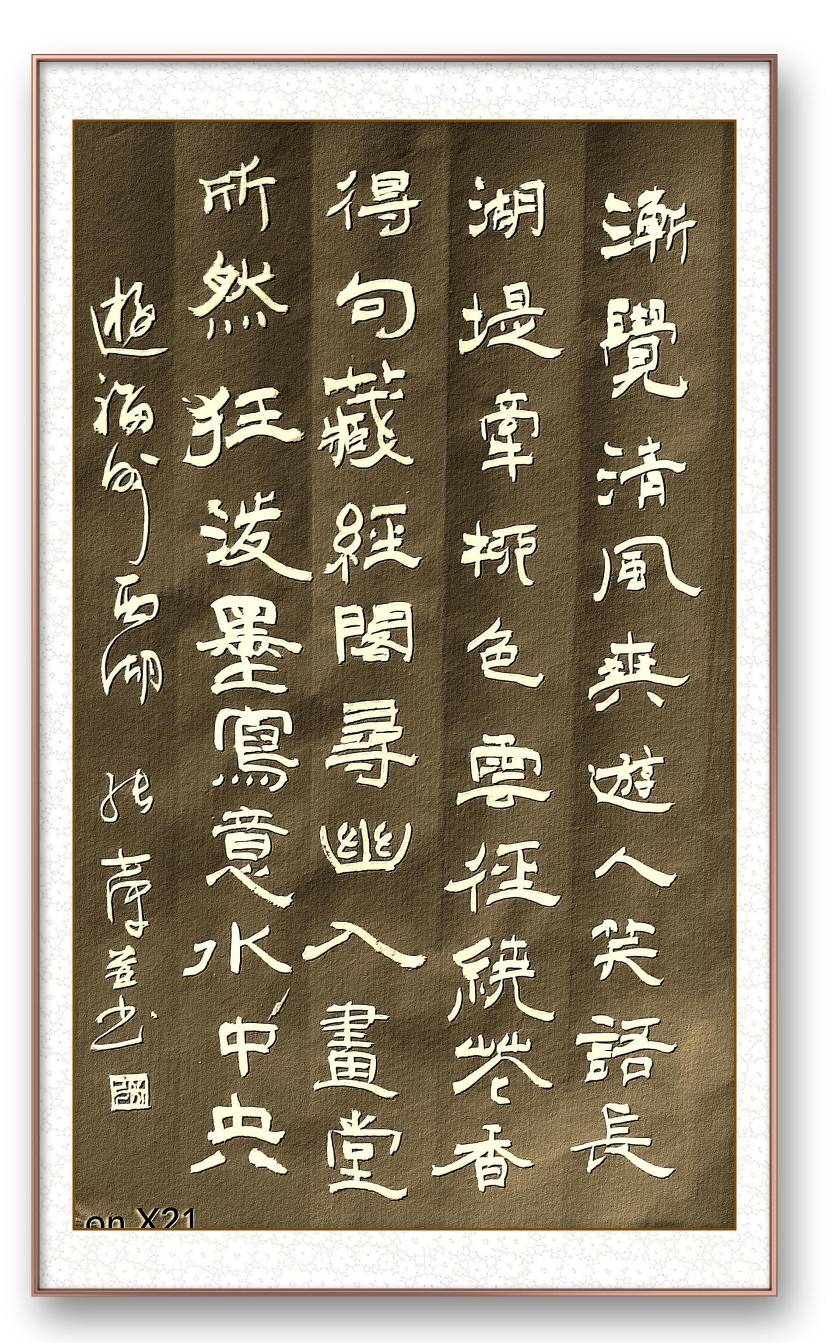 漸覺清風爽遊人笑語長
湖堤牽柳色雲徑繞花香
得句藏經閣尋幽入畫堂
所然狂潑墨寫意水中央
遊福州西湖
書
on X21